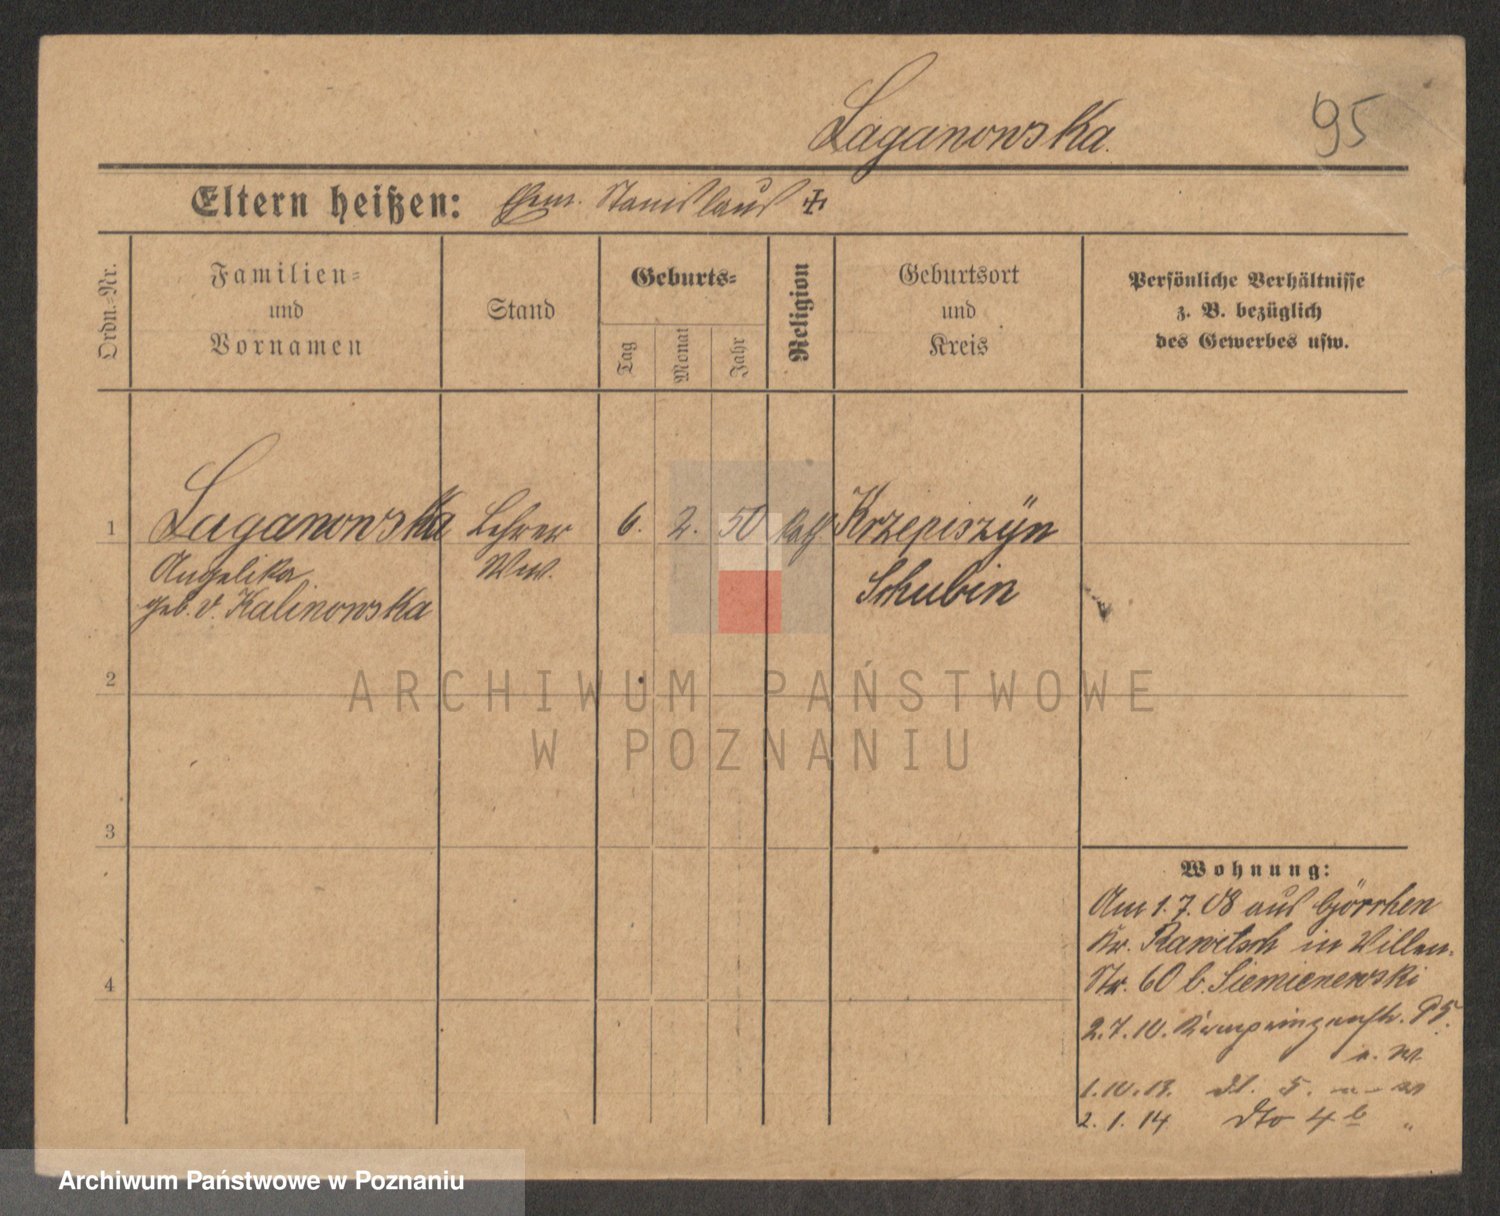 Laganowska.
95
Eltern heißen: Ehem. Stanislaus ✝
Ordn.-Nr.
Familien-
und
Vornamen
Stand
Geburts-
Tag
Monat
Jahr
Religion
Geburtsort
und
Kreis
Persönliche Verhältnisse
z. B. bezüglich
des Gewerbes usw.
1 Laganowska Lehrer 6. 2. 50 kath. Krzepiszyn
Angelika Ww. Schubin
geb. v. Kalinowska
2
3
4
Wohnung:
Am 1.7.08 aus Görchen
Kr. Rawitsch in Villen-
Str. 60 b. Siemienewski
2.7.10.
1.10.13. 5.
2.1.14 dto 4 b "
ARCHIWUM PAŃSTWOWE
W POZNANIU
Archiwum Państwowe w Poznaniu